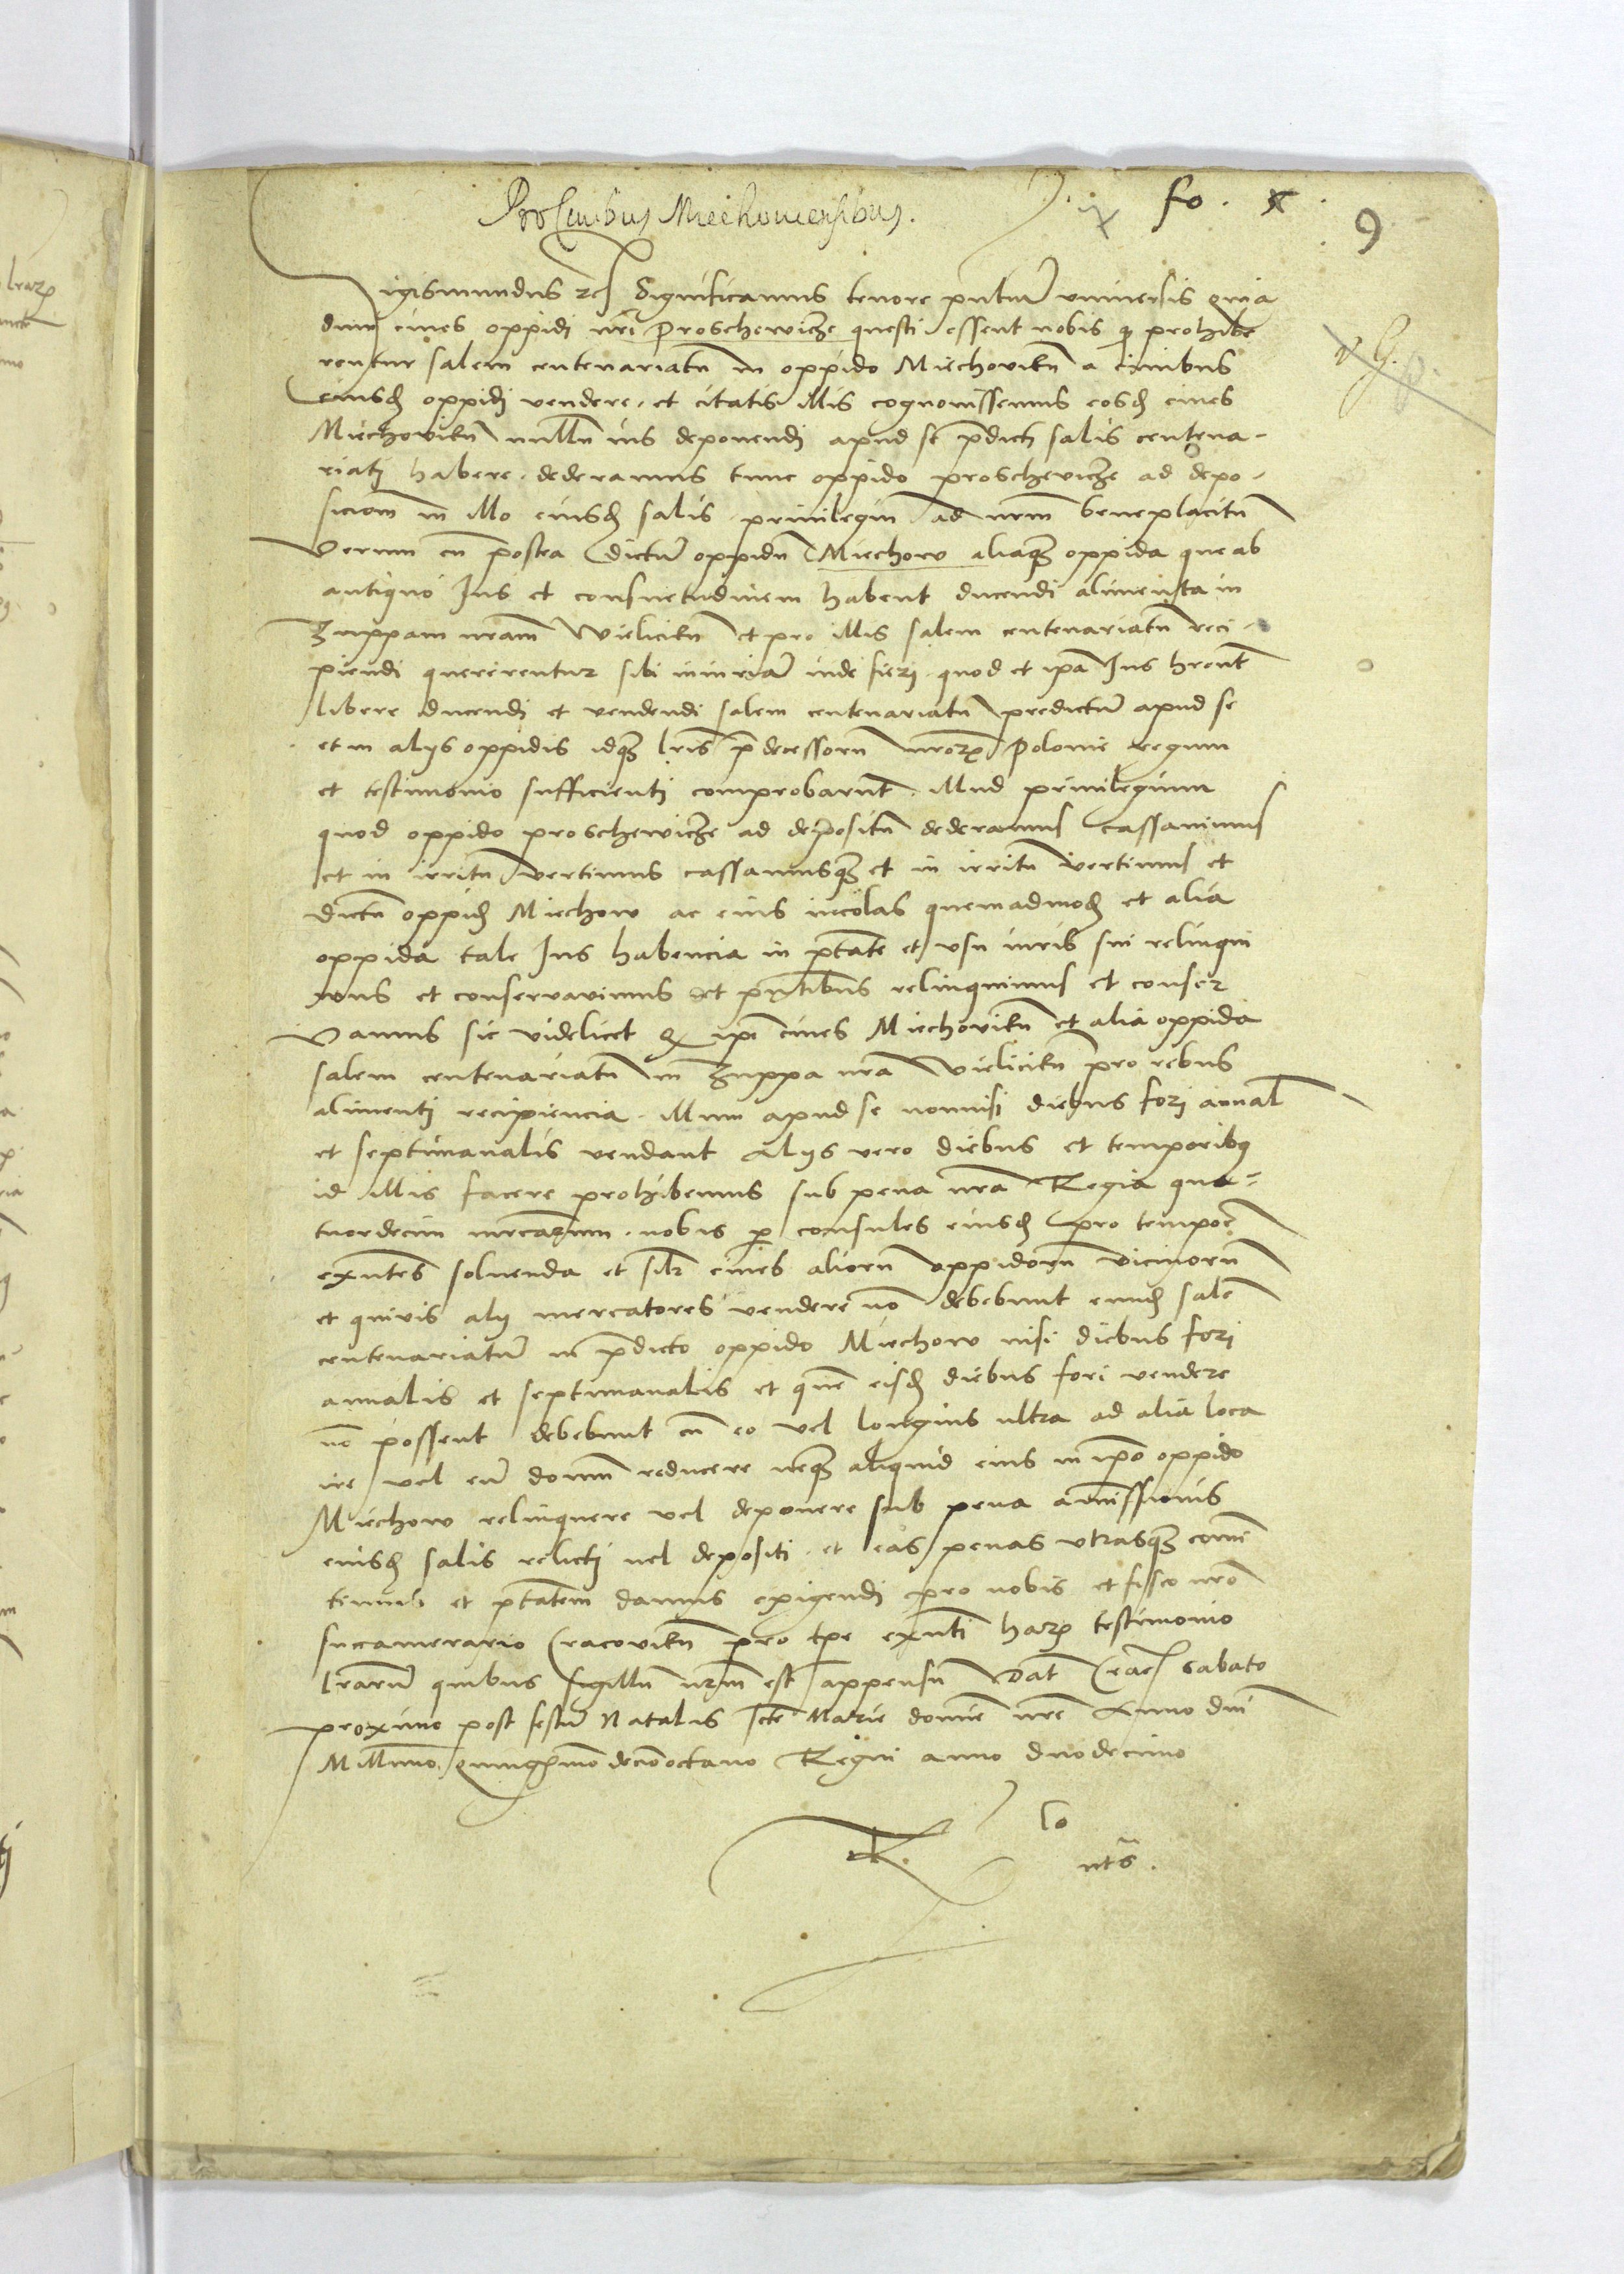 Pro Civibus Miechoviensibus. fo. x
9
Sigismundus rex Significamus tenore pntium universis quia
dum cives oppidi nri Proschewicze questi essent nobis q prohibe
rentur salem centenariatu in oppido Miechovien a civibus
eiusd oppidi vendere et citatis illis cognovissemus eosd cives
Miechovien nullu ius deponendi apud se pdicti salis centena-
riati habere dederamus tunc oppido proschewicze ad depo-
sicionem in illo eiusd salis privilegiu ad nrm beneplacitu
Verum cu postea dictu oppidu Miechow aliaq oppida que ab
antiquo Ius et consuetudinem habent ducendi alimenta in
Zuppam nram Wielicien et pro illis salem centenariatu reci-
piendi quererentur sibi iniuria inde fieri quod et ipa Ius hrent
libere ducendi et vendendi salem centenariatu predictu apud se
et in alys oppidis idq lris pdecessoru nrorz Polonie regum
et testimonio sufficienti comprobarunt illud privilegium
quod oppido proschewicze ad depositu dederamus cassavimus
et in irritu vertimus cassamusq et in irritu vertimus et
dictu oppid Miechow ac eius incolas quemadmod et alia
oppida tale Ius habencia in ptate et usu iuris sui relinqui
mus et conservavimus et pntibus relinquimus et conser
vamus sic videlicet q ipi cives Miechovien et alia oppida
salem centenariatu in Zuppa nra Wielicien pro rebus
alimenti recipiencia illum apud se nonnisi diebus fori annal
et septimanalis vendant Alys vero diebus et temporibq
id illis facere prohibemus sub pena nra Regia qua-
tuordecim mrcarum nobis p consules eiusd pro tempore
exntes solvenda et silr cives alioru oppidoru vicinoru
et quivis aly mercatores vendere no debebunt eund sale
centenariatu in pdicto oppido Miechow nisi diebus fori
annalis et septimanalis et que eisd diebus fori vendere
no possent debebunt cu eo vel longius ultra ad alia loca
ire vel eu domu reducere neq aliquid eius in ipo oppido
Miechow relinquere vel deponere sub pena amissionis
eiusd salis relicti vel depositi et eas penas utrasq comit
timus et ptatem damus exigendi pro nobis et fisco nro
succamerario Cracovien pro tpe exnti harz testimonio
lraru quibus sigillu nrm est appensu Dat Crac Sabato
proximo post festu Natalis scte Marie domine nre Anno dni
Millimo quingmo decimooctavo Regni anno duodecimo